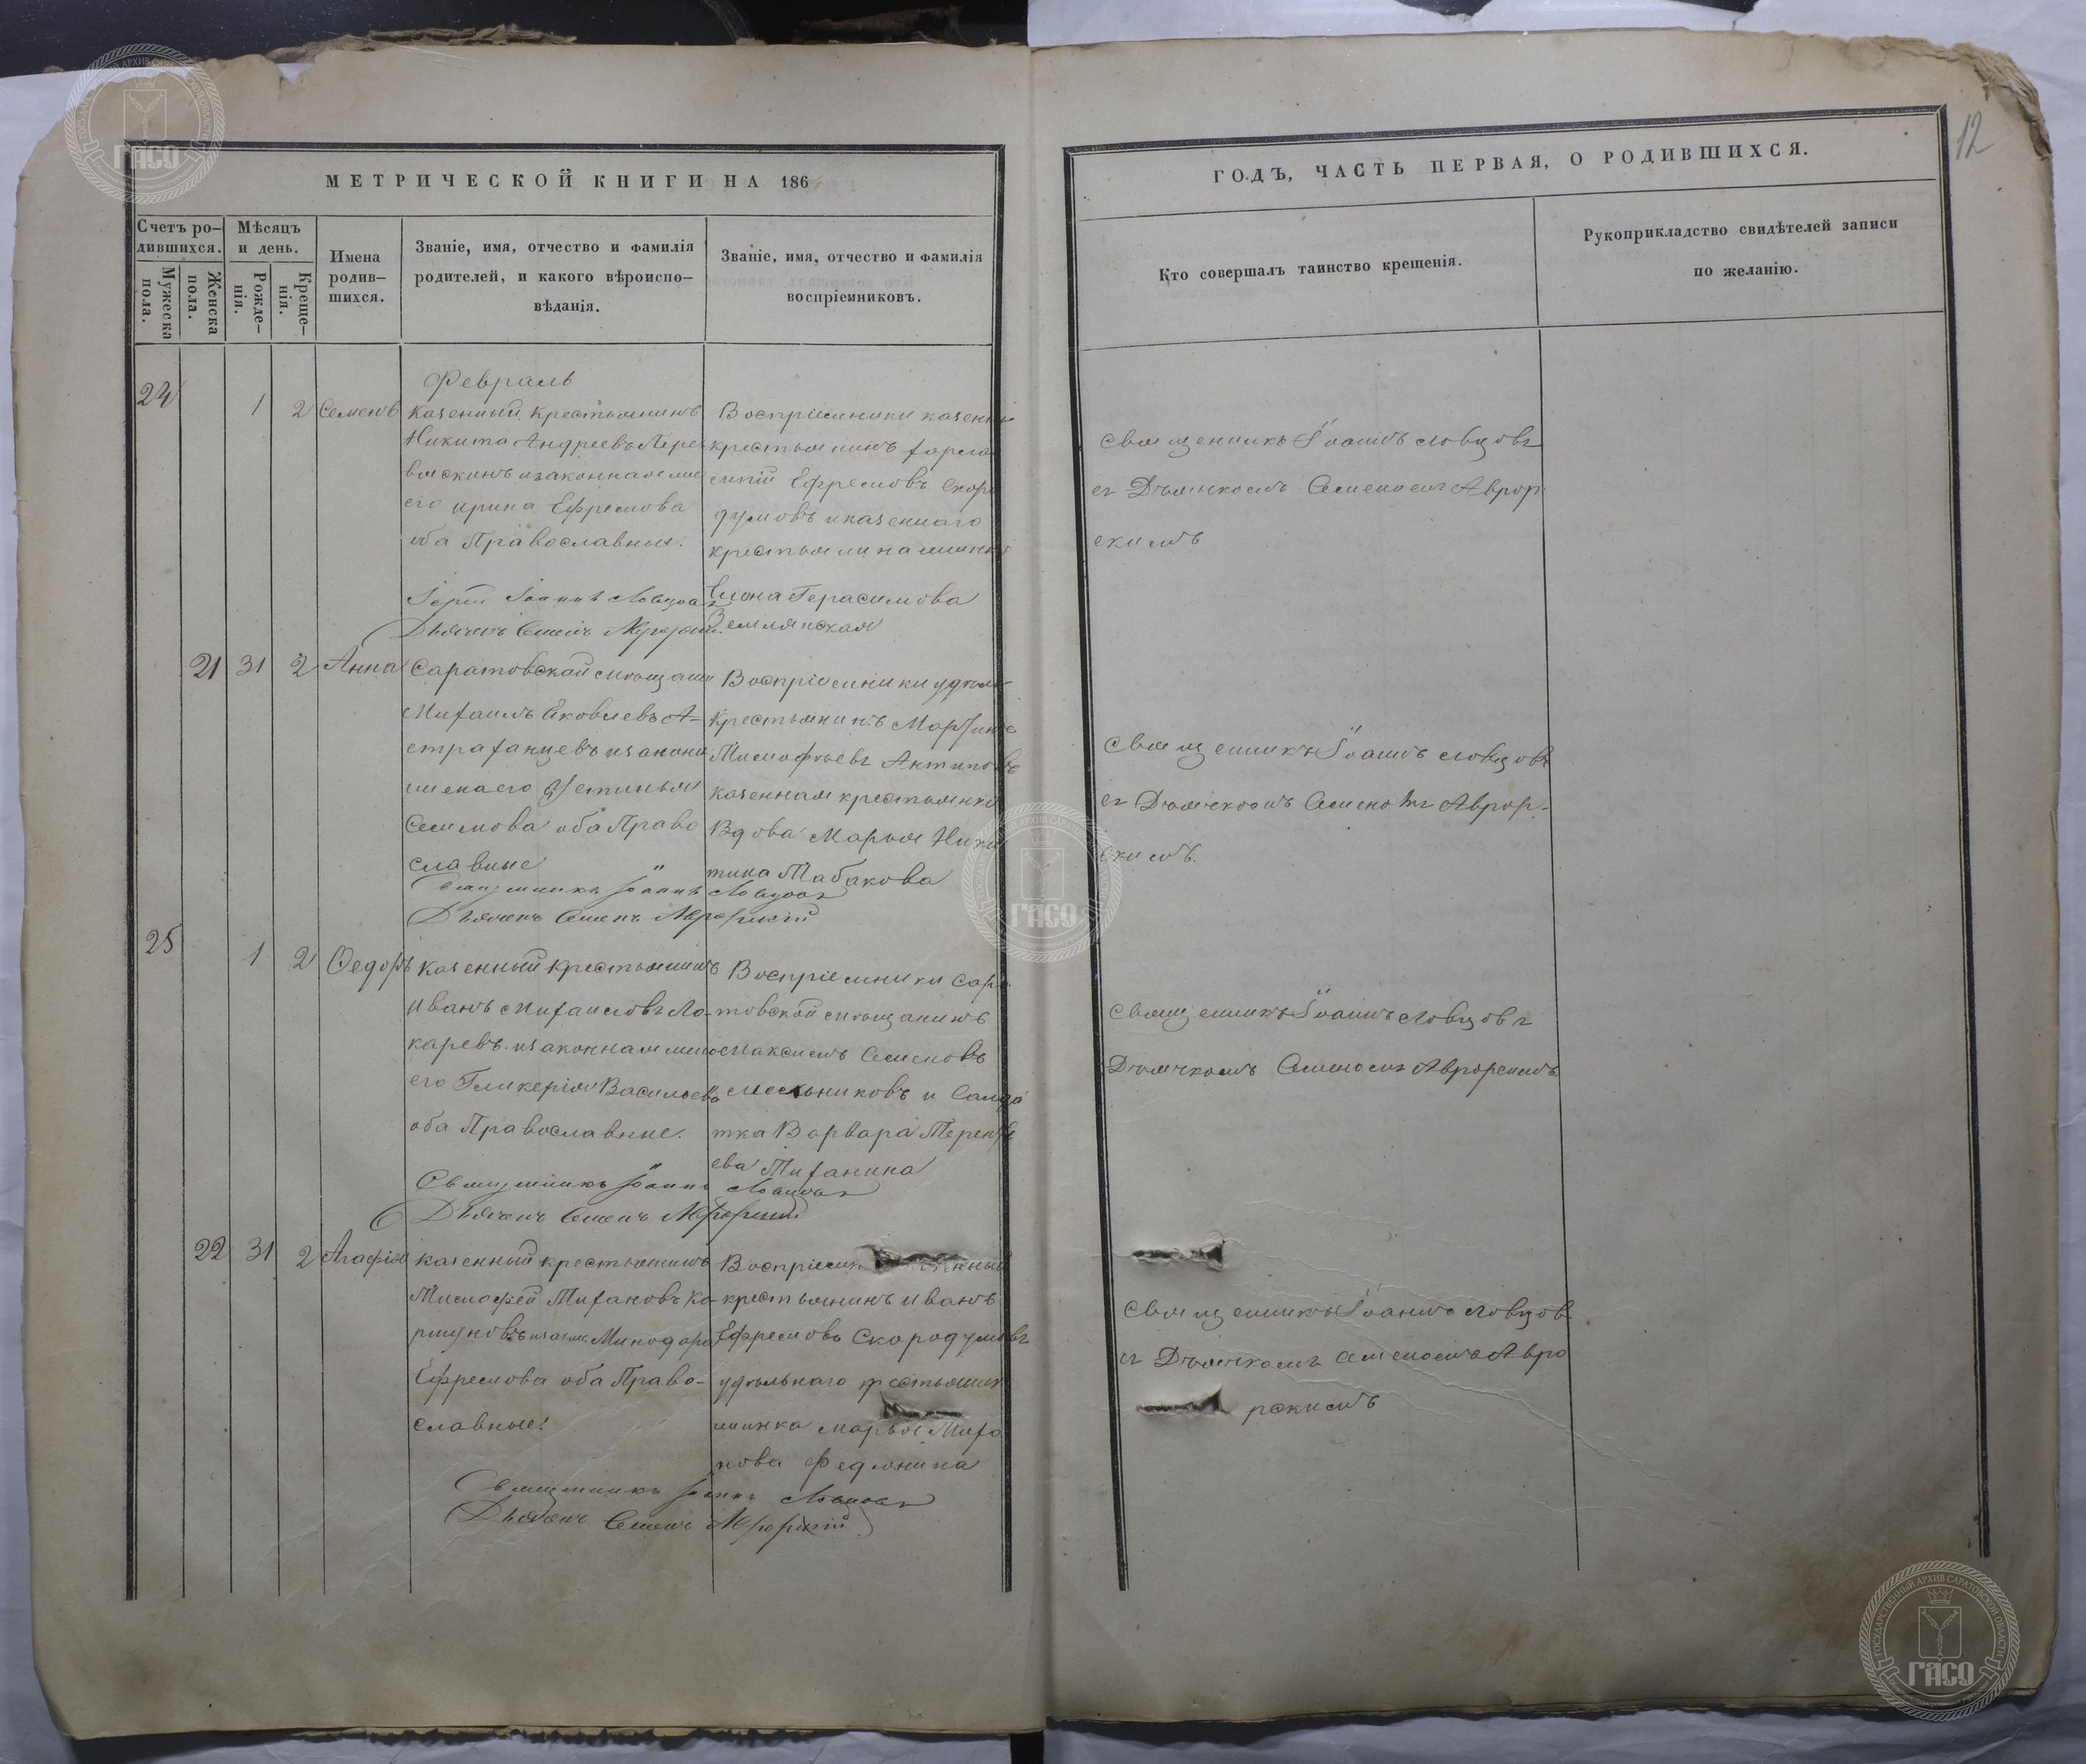 12
МЕТРИЧЕСКОЙ КНИГИ НА 186
Счетъ ро-
дившихся.
Мужеска
пола.
Женска
пола.
Мѣсяцъ
и день.
Рожде-
нія.
Креще-
нія.
Имена
родив-
шихся.
Званіе, имя, отчество и фамилія
родителей, и какого вѣроиспо-
вѣданія.
Званіе, имя, отчество и фамилія
воспріемниковъ.
ГОДЪ, ЧАСТЬ ПЕРВАЯ, О РОДИВШИХСЯ.
Кто совершалъ таинство крещенія.
Рукоприкладство свидѣтелей записи
по желанію.
Февраль
24 1 2 Семенъ
Казенный крестьянинъ
Никита Андреевъ Пере
васкинъ и законная
его ирина Ефремова
оба Православныя.
Іерей Іоаннъ Ловцовъ
Дьячекъ Семенъ Аврорскій
Воспріемники казенны
крестьянинъ
Ефремовъ Скоро
думовъ и казеннаго
крестьянина
Елена Герасимова
Землянская
Священникъ Іоаннъ Ловцовъ
съ Дьячкомъ Семеномъ Аврор
скимъ
21 31 2 Анна
Саратовской мѣщани
Михаилъ Яковлевъ А-
страханцевъ и законн
жена его Устинья
Семенова оба Право
славные
Священникъ Іоаннъ Ловцовъ
Дьячекъ Семенъ Аврорскій
Воспріемники удѣль
крестьянинъ Мартинъ
Тимофѣевъ Антиповъ
казенная крестьянка
Вдова Марья Ники
тина Табакова
Священникъ Іоаннъ Ловцовъ
съ Дьячкомъ Семеномъ Аврор-
скимъ.
25 1 2 Ѳедоръ
казенный крестьянинъ
Иванъ Михаиловъ Ло-
каревъ и законная
его Гликерія Васильева
оба Православные.
Священникъ Іоаннъ Ловцовъ
Дьячекъ Семенъ Аврорскій
Воспріемники Сара
товской мѣщанинъ
Максимъ Семеновъ
Мельниковъ и Салда
тка Варвара Терентьева
Тиханина
Священникъ Іоаннъ Ловцовъ
Дьячкомъ Семеномъ Аврорскимъ.
22 31 2 Агафія
казенный крестьянинъ
Тимофей Тихановъ Ко-
ршуновъ Минодора
Ефремова оба Право-
славные.
Священникъ Іоаннъ Ловцовъ
Дьячекъ Семенъ Аврорскій
Воспріемн
крестьянинъ Иванъ
Ефремовъ Скородумовъ
удѣльнаго крестьянин
женка Марья Тихо
нова Федюнина
Священникъ Іоаннъ Ловцовъ
съ Дьячкомъ Семеномъ Авро
рскимъ
ГОСУДАРСТВЕННЫЙ АРХИВ САРАТОВСКОЙ ОБЛАСТИ
ГАСО
ГАСО
ГОСУДАРСТВЕННЫЙ АРХИВ САРАТОВСКОЙ ОБЛАСТИ
ГАСО